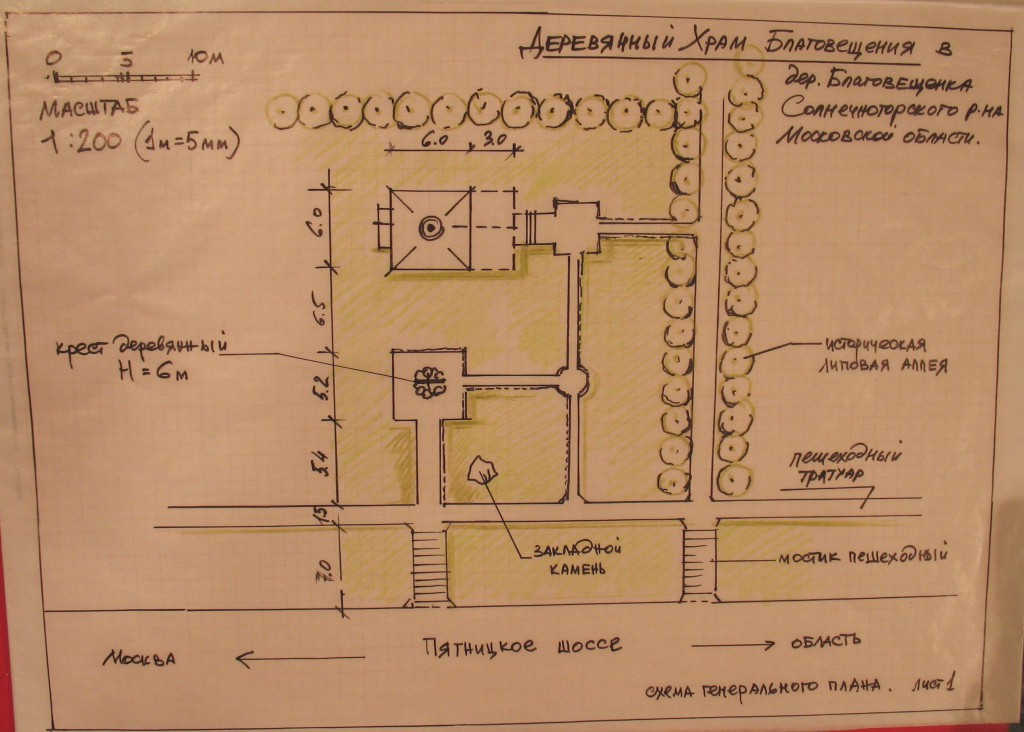 Деревянный Храм Благовещения в
дер. Благовещенка
Солнечногорского р-на
Московской области.
0 5 10м
Масштаб
1:200 (1м=5мм)
6.0 3.0
6.0
6.5
5.2
5.4
1.5
7.0
крест деревянный
H = 6м
историческая
липовая аллея
пешеходный
тратуар
закладной
камень
мостик пешеходный
Москва
Пятницкое шоссе
область
схема генерального плана. лист 1